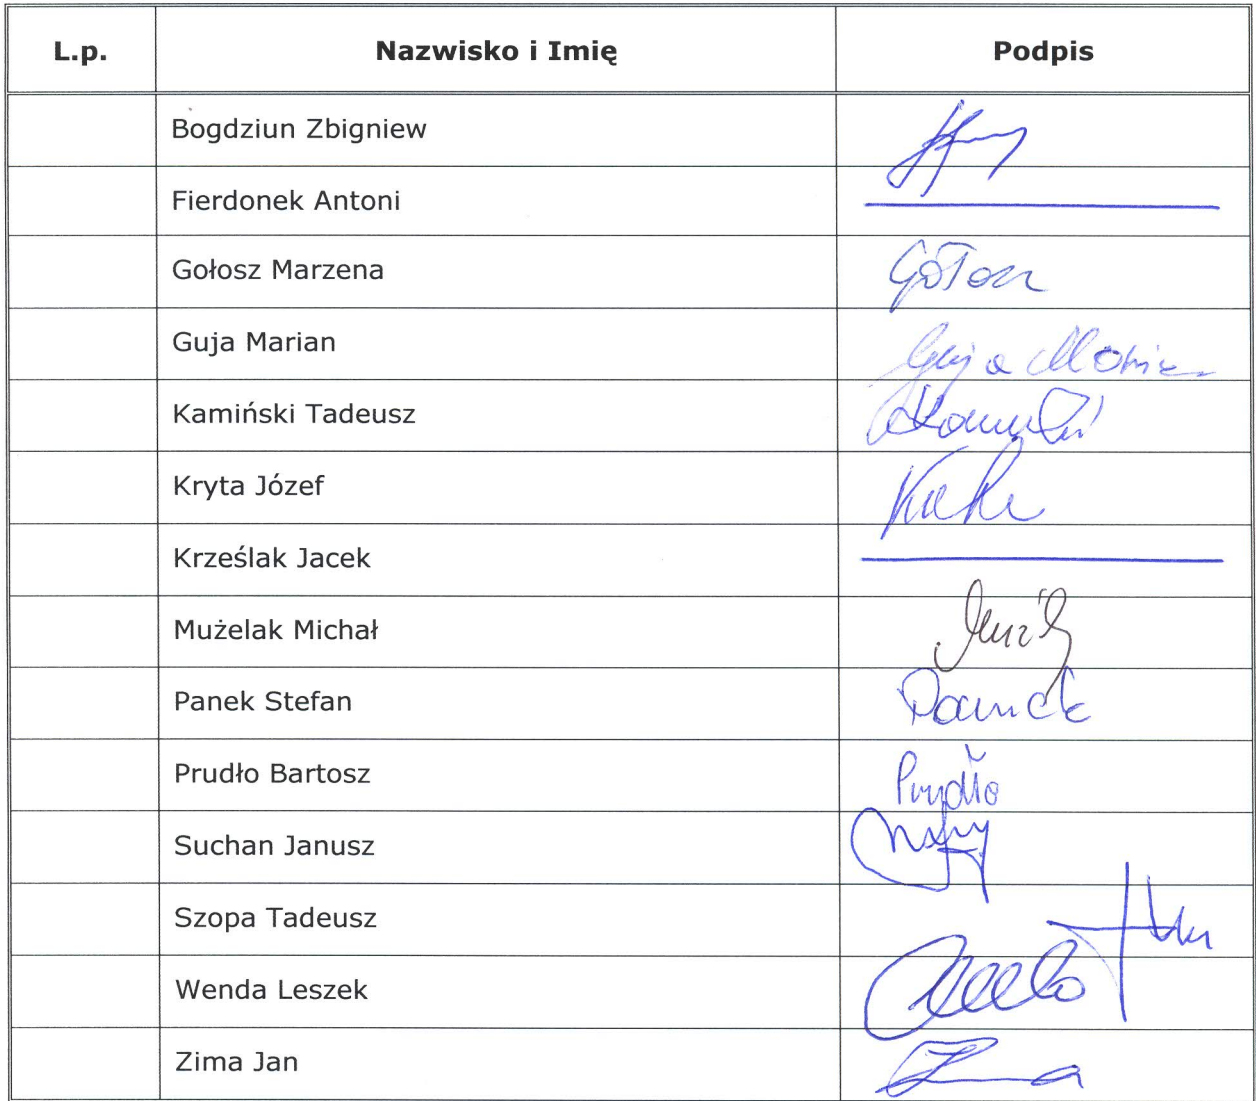 L.p. Nazwisko i Imię Podpis
Bogdziun Zbigniew
Fierdonek Antoni
Gołosz Marzena Gołosz
Guja Marian Guja Marian
Kamiński Tadeusz
Kryta Józef
Krześlak Jacek
Mużelak Michał
Panek Stefan Panek
Prudło Bartosz Prudło
Suchan Janusz
Szopa Tadeusz
Wenda Leszek
Zima Jan Zima